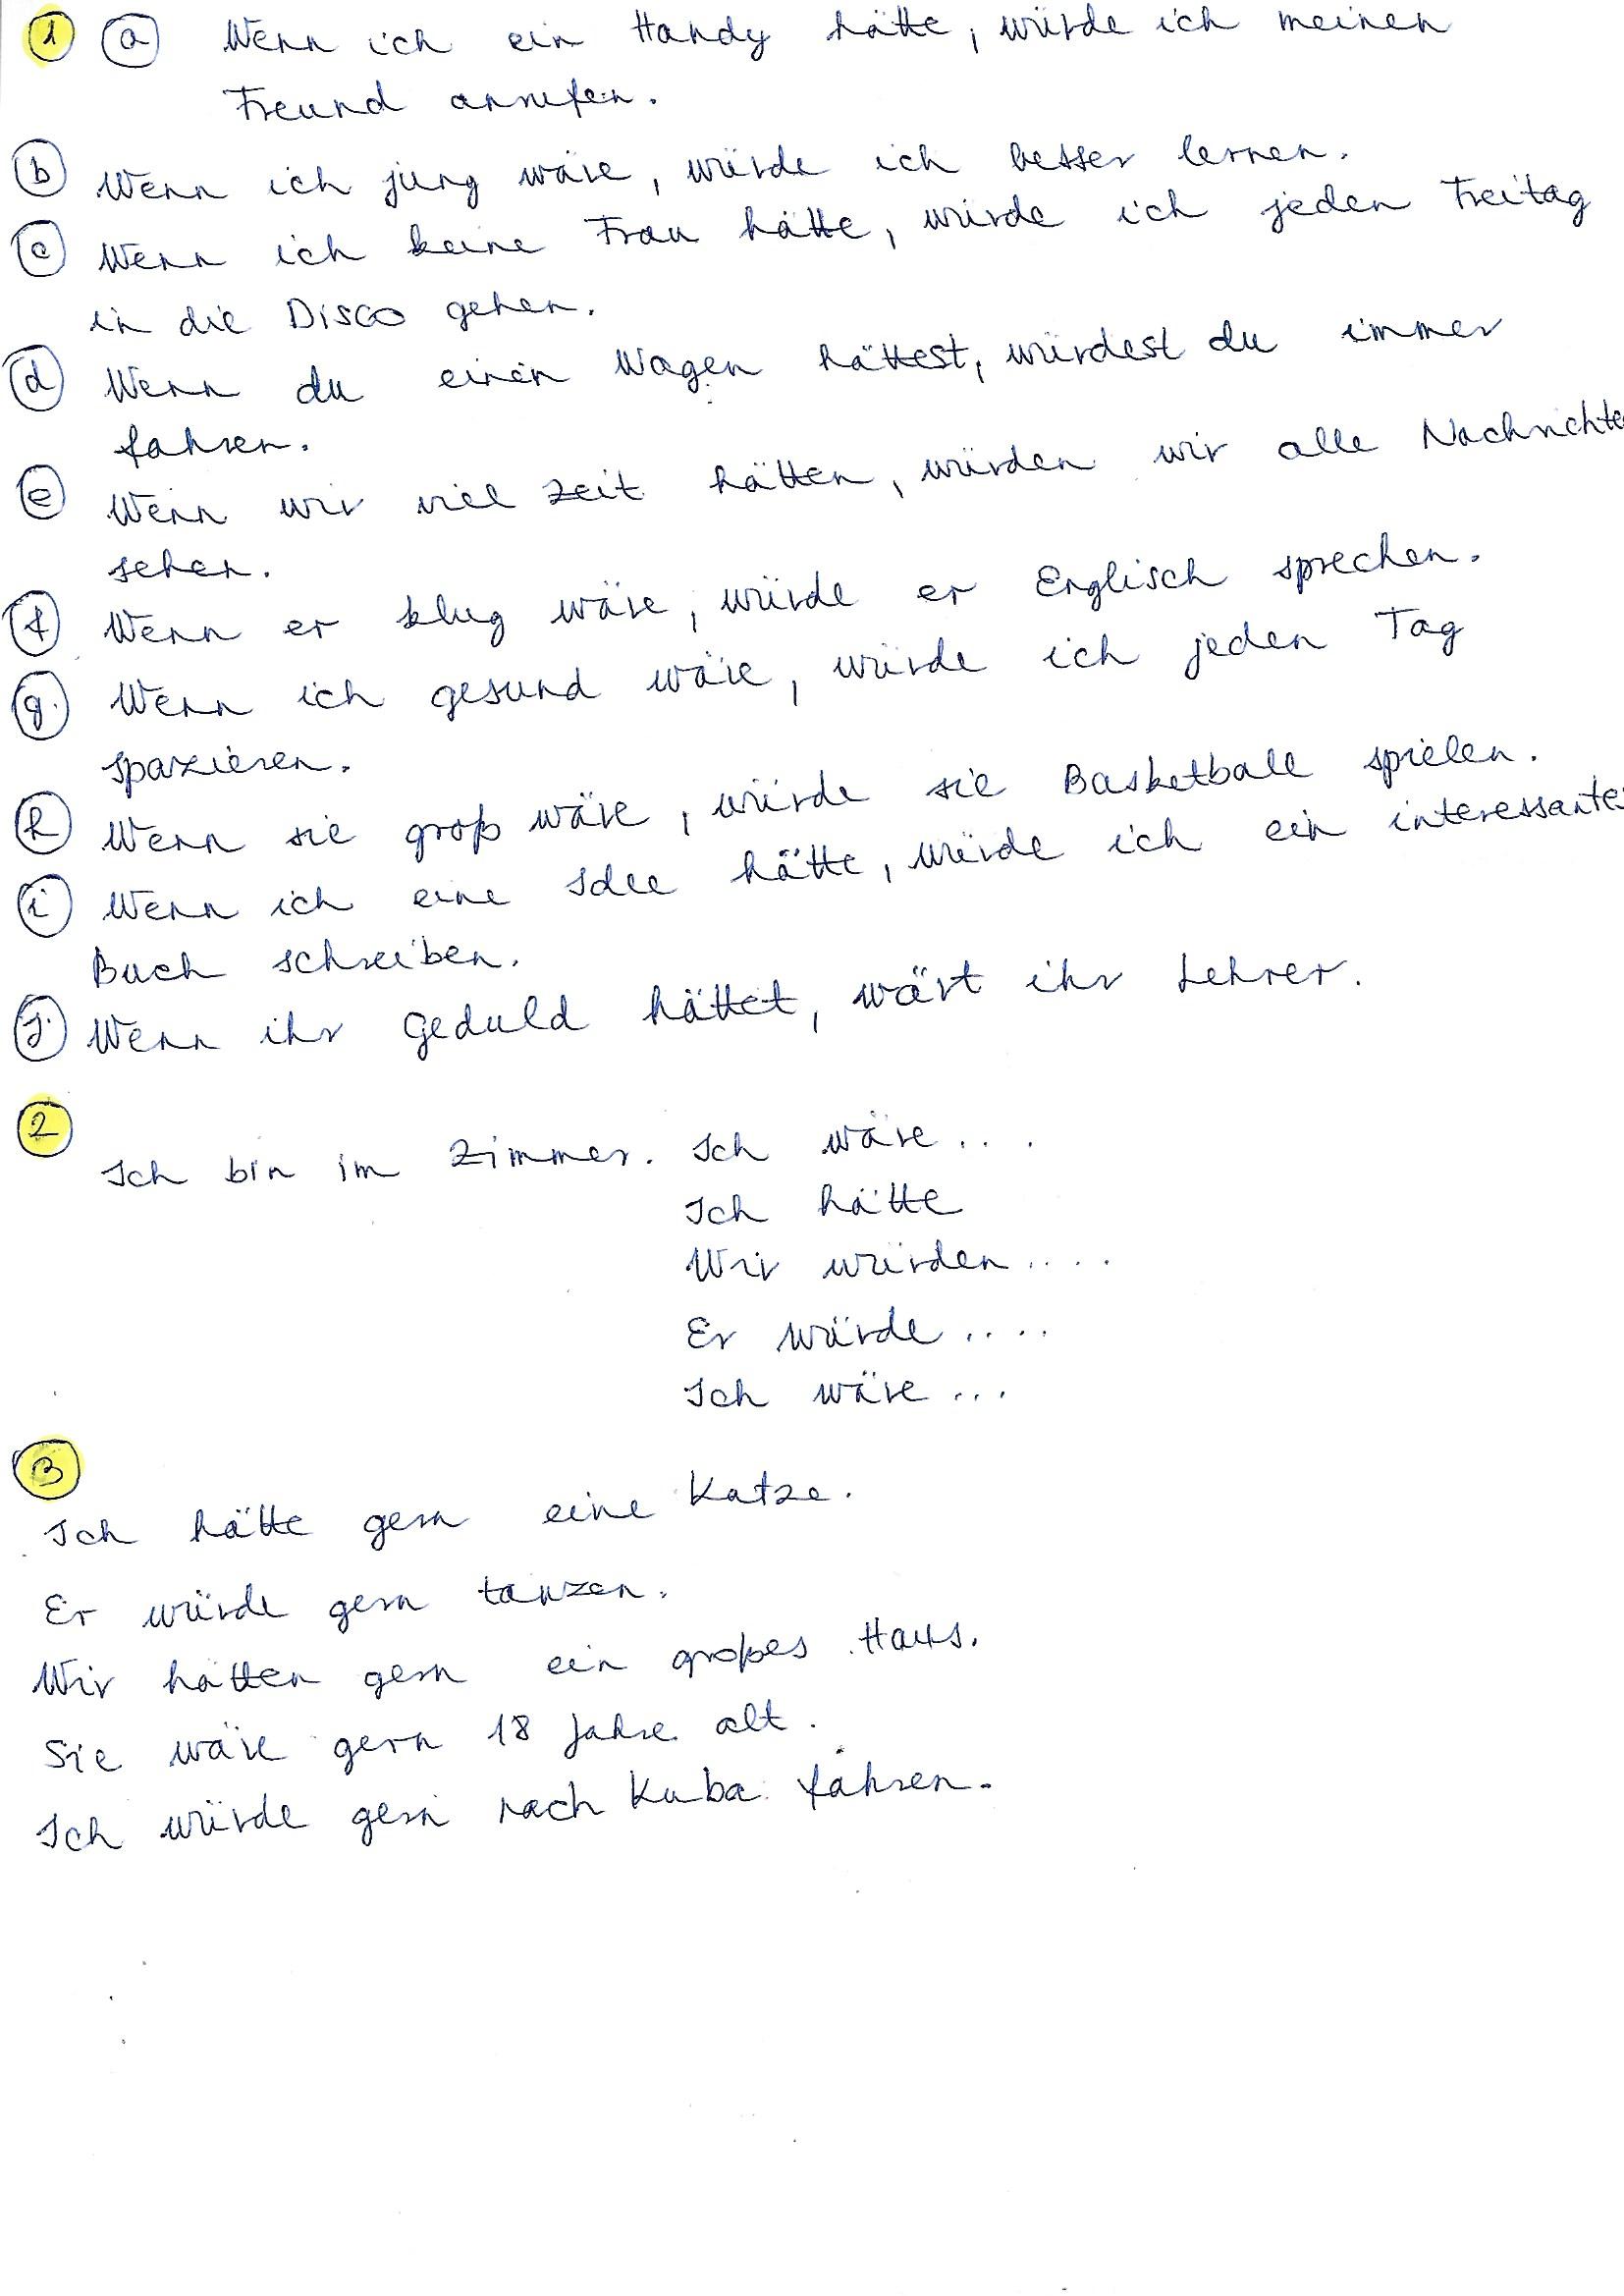 1 a Wenn ich ein Handy hätte, würde ich meinen
Freund anrufen.
b Wenn ich jung wäre, würde ich besser lernen.
c Wenn ich keine Frau hätte, würde ich jeden Freitag
in die Disco gehen.
d Wenn du einen Wagen hättest, würdest du immer
fahren.
e Wenn wir viel Zeit hätten, würden wir alle Nachrichte
sehen.
f Wenn er klug wäre, würde er Englisch sprechen.
g. Wenn ich gesund wäre, würde ich jeden Tag
spazieren.
h Wenn sie groß wäre, würde sie Basketball spielen.
i Wenn ich eine Idee hätte, würde ich ein interessantes
Buch schreiben.
j. Wenn ihr Geduld hättet, wärt ihr Lehrer.
2
Ich bin im Zimmer. Ich wäre ....
Ich hätte
Wir würden ....
Er würde ....
Ich wäre ...
3
Ich hätte gern eine Katze.
Er würde gern tanzen.
Wir hätten gern ein großes Haus.
Sie wäre gern 18 Jahre alt.
Ich würde gern nach Kuba fahren.